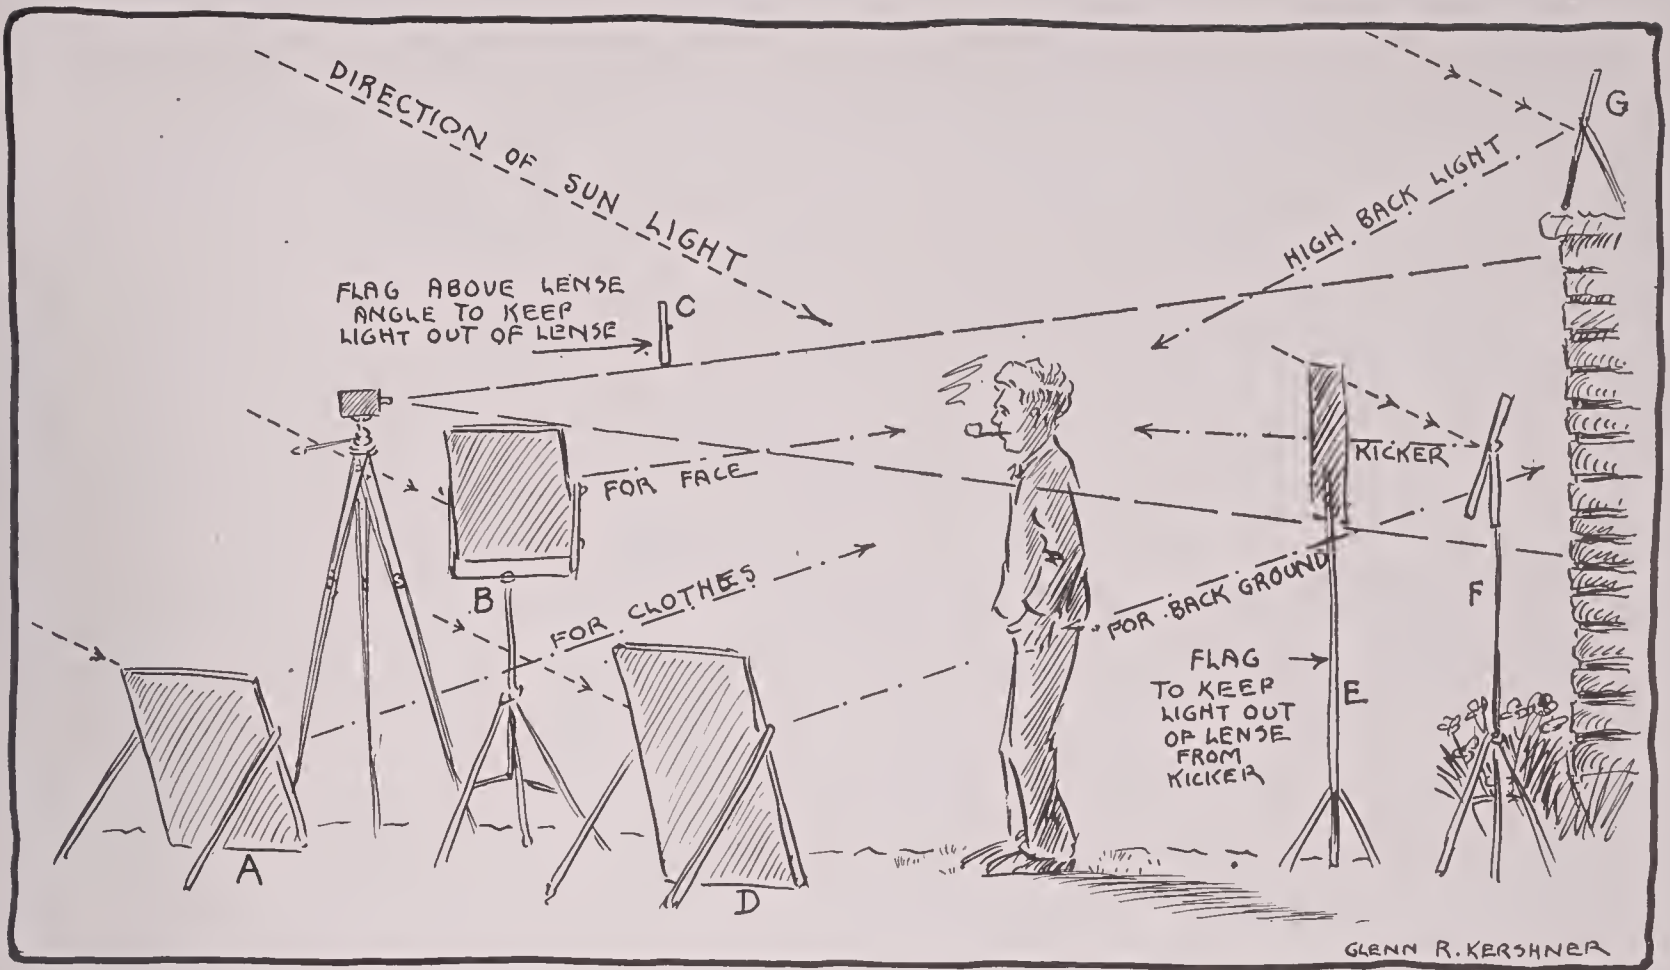 DIRECTION OF SUN LIGHT
G
HIGH BACK LIGHT
FLAG ABOVE LENSE
ANGLE TO KEEP
LIGHT OUT OF LENSE
C
KICKER
FOR FACE
B
FOR CLOTHES
FOR BACK GROUND
F
FLAG
TO KEEP
LIGHT OUT
OF LENSE
FROM
KICKER
E
A
D
GLENN R. KERSHNER